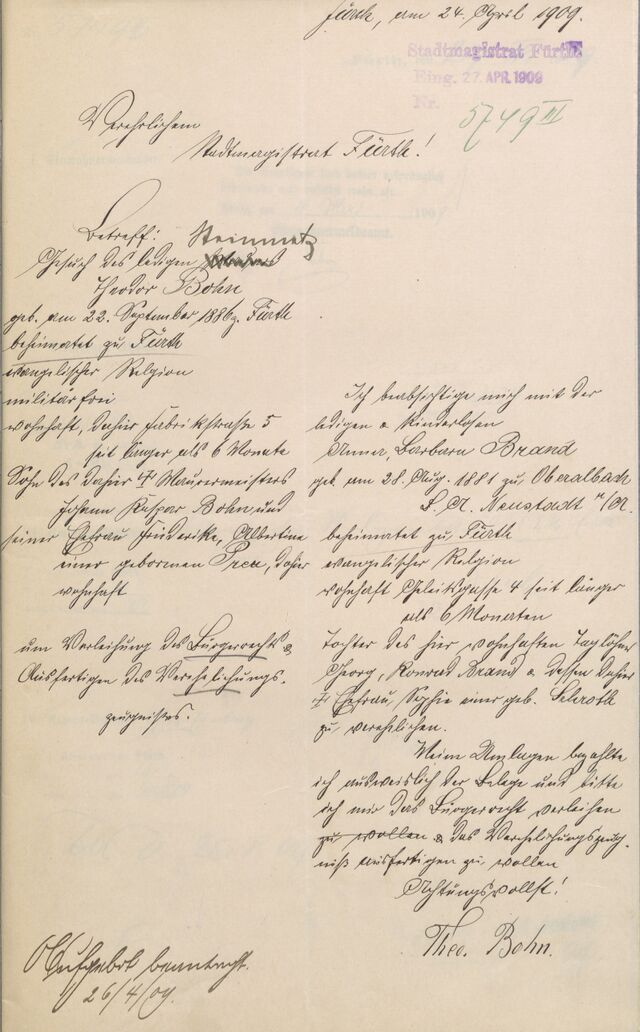 Fürth, am 24. April 1909.
Stadtmagistrat Fürth
Eing. 27. APR. 1909
Nr.
5749 III
Verehrlichem
Stadtmagistrat Fürth!
Betreff: Steinmetz
Gesuch des ledigen
Theodor Bohn
geb. am 22. September 1886 z. Fürth
beheimatet zu Fürth
evangelischer Religion
militärfrei
wohnhaft, dahier Fabrikstraße 5
seit länger als 6 Monate
Sohn des dahier † Maurermeisters
Johann Kaspar Bohn und
seiner Ehefrau Friederike, Albertine
einer gebornen, dahier
wohnhaft
um Verleihung des Bürgerrechts &
Ausfertigen des Verehelichungs-
zeugnisses.
Ich beabsichtige mich mit der
ledigen & kinderlosen
Anna, Barbara Brand
geb. am 28. Aug. 1881 zu Oberalbach
B. A. Neustadt a/A.
beheimatet zu Fürth
evangelischer Religion
wohnhaft Geleitsgasse 4 seit länger
als 6 Monaten
Tochter des hier wohnhaften Taglöhners
Georg, Konrad Brand & dessen dahier
† Ehefrau, Sophie einer geb. Schroth
zu verehelichen.
Meine Umlagen bezahlte
ich ausweislich der Belege und bitte
ich mir das Bürgerrecht verleihen
zu wollen & das Verehelichungszeug-
niß ausfertigen zu wollen
Achtungsvollst!
Theo. Bohn.
Aufgebot beantragt.
26/4/09.